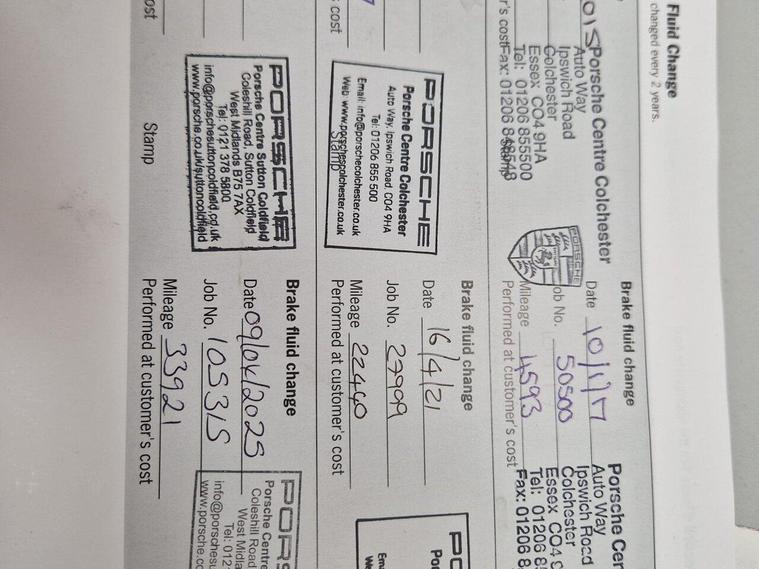 Fluid Change
changed every 2 years.
015
Porsche Centre Colchester
Auto Way
Ipswich Road
Colchester
Essex CO4 9HA
Tel: 01206 855500
Fax: 01206
r's cost
Stamp
PORSCHE
Brake fluid change
Date 10/1/17
Job No. 50500
Mileage 4593
Performed at customer's cost
Porsche Cen
Auto Way
Ipswich Road
Colchester
Essex CO4 9
Tel: 01206 85
Fax: 01206 8
s cost
PORSCHE
Porsche Centre Colchester
Auto Way, Ipswich Road, CO4 9HA
Tel: 01206 855 500
Email: info@porschecolchester.co.uk
Web: www.porschecolchester.co.uk
Stamp
Brake fluid change
Date 16/4/21
Job No. 27999
Mileage 22440
Performed at customer's cost
PO
Po
Ema
We
ost
PORSCHE
Porsche Centre Sutton Coldfield
Coleshill Road, Sutton Coldfield
West Midlands B75 7AX
Tel: 0121 378 5800
info@porschesuttoncoldfield.co.uk
www.porsche.co.uk/suttoncoldfield
Stamp
Brake fluid change
Date 09/04/2025
Job No. 105315
Mileage 33921
Performed at customer's cost
PORS
Porsche Centre
Coleshill Road
West Midla
Tel: 012
info@porschesu
www.porsche.co